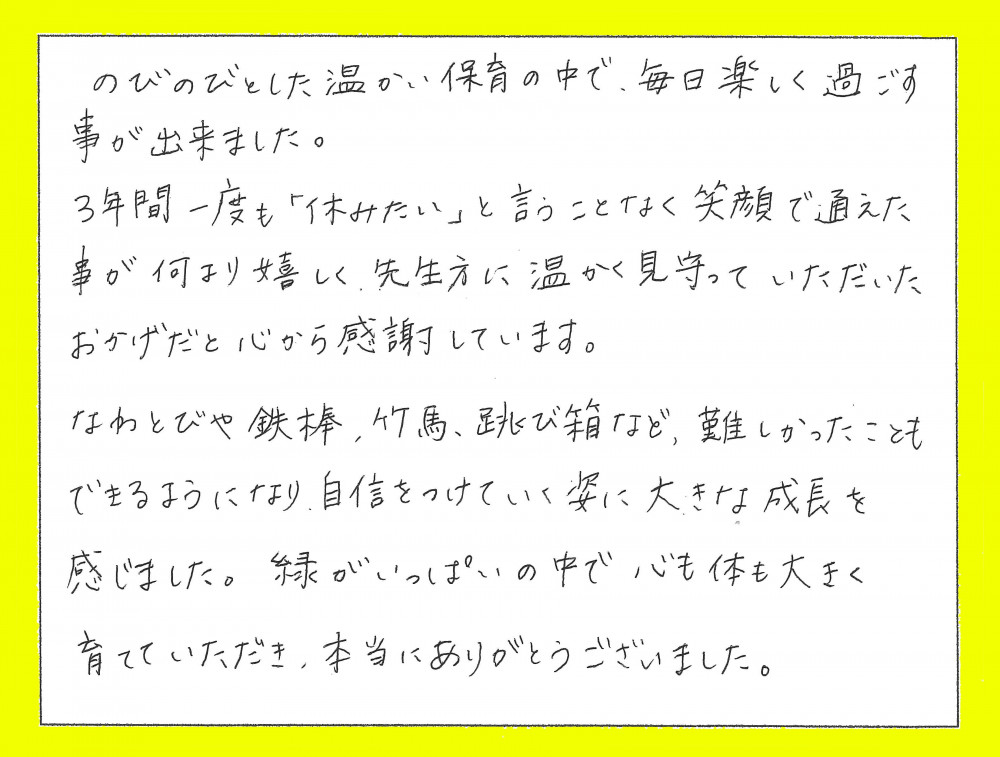 のびのびとした温かい保育の中で、毎日楽しく過ごす
事が出来ました。
3年間一度も「休みたい」と言うことなく笑顔で通えた
事が何より嬉しく、先生方に温かく見守っていただいた
おかげだと心から感謝しています。
なわとびや鉄棒、竹馬、跳び箱など、難しかったことも
できるようになり、自信をつけていく姿に大きな成長を
感じました。緑がいっぱいの中で心も体も大きく
育てていただき、本当にありがとうございました。